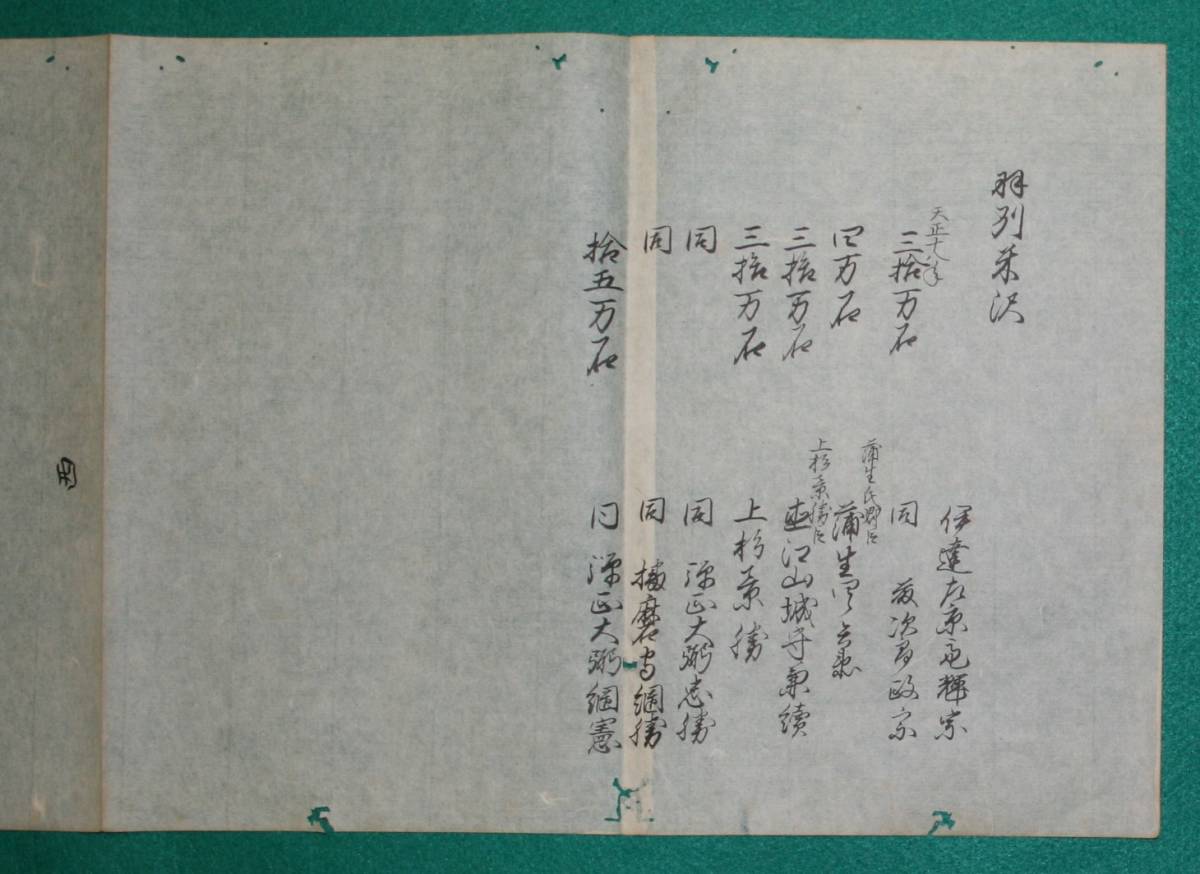 羽州米沢
伊達左京亮輝宗
天正十八年
三拾万石 同 藤次郎政宗
蒲生氏郷臣
四万石 蒲生四郎兵衛
上杉景勝臣
三拾万石 直江山城守兼續
三拾万石 上杉景勝
同 同 弾正大弼定勝
同 同 播磨守綱勝
拾五万石 同 弾正大弼綱憲
西